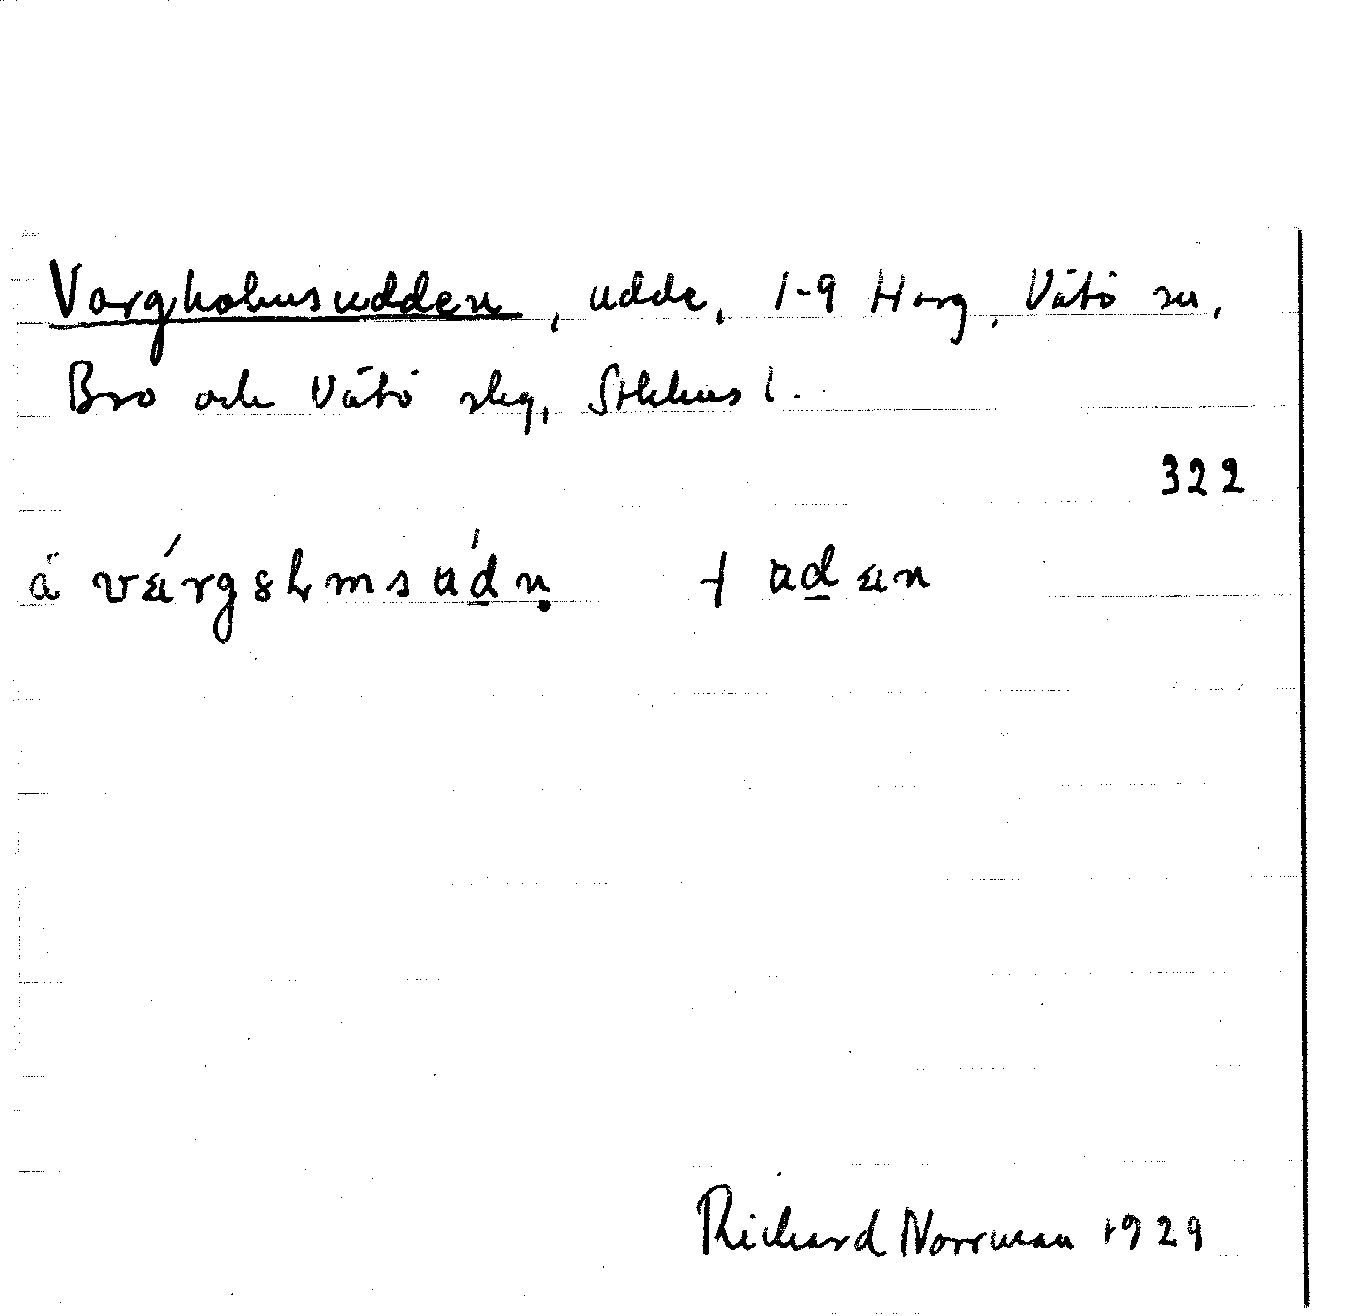 Vargholmsudden, udde, 1-9 Harg, Vätö sn,
Bro och Vätö skg, Sthlms l.
322
Richard Norrman 1929